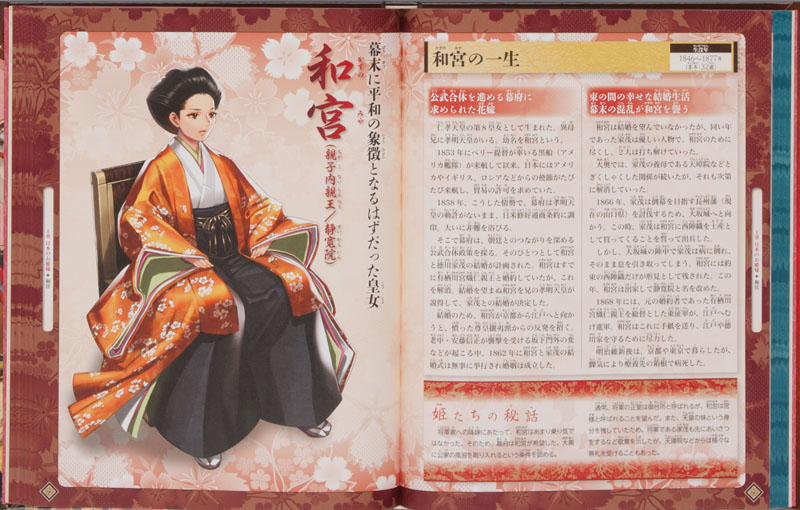 幕末に平和の象徴となるはずだった皇女
和宮
(親子内親王/静寛院)
和宮の一生
生没年
1846〜1877年
公武合体を進める幕府に
求められた花嫁
仁孝天皇の第8皇女として生まれた。異母
兄に孝明天皇がいる。幼名を和宮という。
1853年にペリー提督が率いる黒船(アメ
リカ艦隊)が来航して以来、日本にはアメリ
カやイギリス、ロシアなどからの使節がたび
たび来航し、貿易の許可を求めていた。
1858年、こうした情勢で、幕府は孝明天
皇の勅許がないまま、日米修好通商条約に調
印、大いに非難を浴びる。
そこで幕府は、朝廷とのつながりを深める
公武合体政策を採る。そのひとつとして和宮
と徳川家茂の結婚が計画された。和宮はすで
に有栖川宮熾仁親王と婚約していたが、これ
を解消。結婚を望まぬ和宮を兄の孝明天皇が
説得して、家茂との結婚が決定した。
結婚のため、和宮が京都から江戸へと向か
うと、憤った尊皇攘夷派からの反発を招く。
老中・安藤信正が襲撃を受ける坂下門外の変
などが起こる中、1862年に和宮と家茂の結婚
式は無事に挙行され婚姻は成立した。
束の間の幸せな結婚生活
幕末の混乱が和宮を襲う
和宮は結婚を望んでいなかったが、同い年
であった家茂は優しい人物で、和宮のために
尽くし、2人は打ち解けていった。
大奥では、家茂の義母である天璋院などと
ぎくしゃくした関係が続いたが、それも次第
に解消していった。
1866年、家茂は倒幕を目指す長州藩(現
在の山口県)を討伐するため、大坂城へと向
かう。この時、家茂は和宮に西陣織を土産と
して買ってくることを誓って出兵した。
しかし、大坂城の陣中で家茂は病に倒れ、
そのまま息を引き取ってしまう。和宮には約
束の西陣織だけが形見として残された。この
年、和宮は出家して静寛院と名を改めた。
1868年には、元の婚約者であった有栖川
宮熾仁親王を総督とした東征軍が、江戸へむ
け進軍。和宮はこれに手紙を送り、江戸や徳
川家を守るために尽力した。
明治維新後は、京都や東京で暮らしたが、
脚気により療養先の箱根で病死した。
姫たちの秘話
将軍家への降嫁にあたって、和宮はあまり乗り気で
はなかった。そのため、幕府は和宮が希望した、大奥
に公家の風習を取り入れるという条件を認める。
通常、将軍の正室は御台所と呼ばれるが、和宮は宮
様と呼ばれることを望んだ。また、天皇の妹という身
分を残していたため、将軍である家茂も先にあいさつ
をするなど敬意を示したが、天璋院などからは様々な
無礼を受けることもあった。